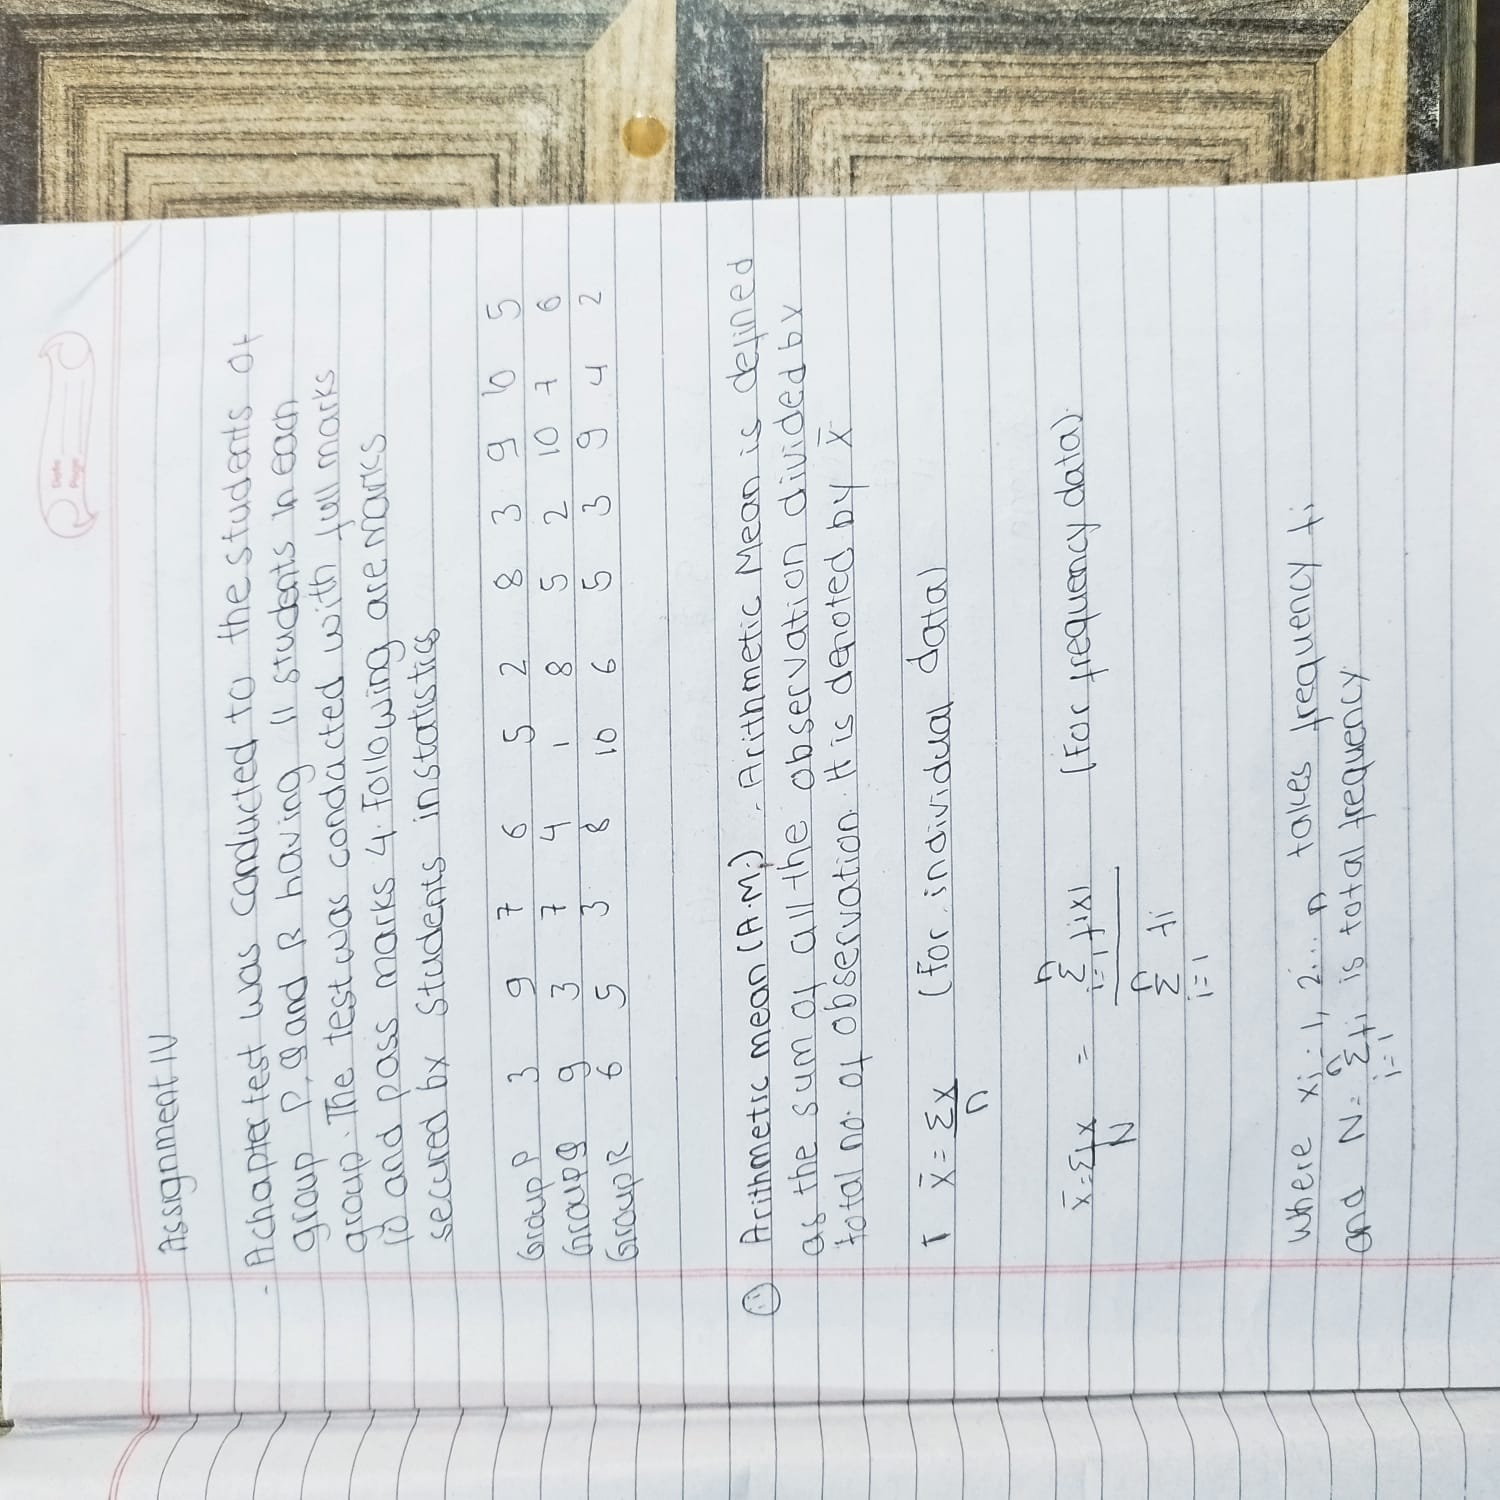 Date
Page
Assignment IV
- A chapter test was conducted to the students of
group P, Q and R having 11 students in each
group. The test was condacted with full marks
10 and pass marks 4. Following are marks
secured by students in statistics
Group P 3 9 7 6 5 2 8 3 9 10 5
Group Q 9 3 7 4 1 8 5 2 10 7 6
Group R 6 5 3 8 10 6 5 3 9 4 2
Arithmetic mean (A.M.) - Arithmetic Mean is defined
as the sum of all the observation divided by
total no. of observation. It is denoted by x̄
x̄ = Σx (for individual data)
n
x̄ = Σfx = n Σ i=1 fixi (For frequency data).
N n Σ i=1 fi
where xi = 1, 2... n takes frequency fi
and N = n Σ i=1 fi is total frequency